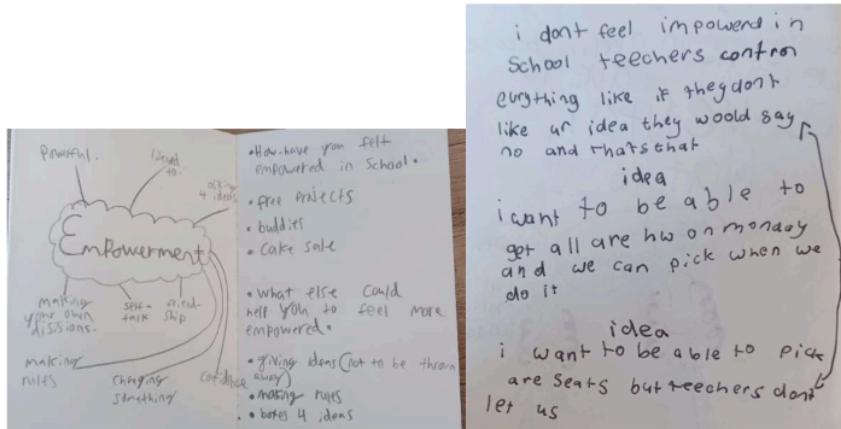 Powerful.
lisend
to.
asking
4 ideas
Empowerment
making
your own
dissions.
self-
talk
friend-
ship
making
rules
changing
something
confidence
• How have you felt
empowered in school.
• free projects
• buddies
• cake sale
• What else could
help you to feel more
empowered.
• giving ideas (not to be thrown
away)
• making rules
• boxes 4 ideas
i dont feel impowerd in
School teechers control
evrything like if they dont
like ur idea they woold say
no and thats that
idea
i want to be able to
get all are hw on monday
and we can pick when we
do it
idea
i want to be able to pick
are seats but teechers dont
let us